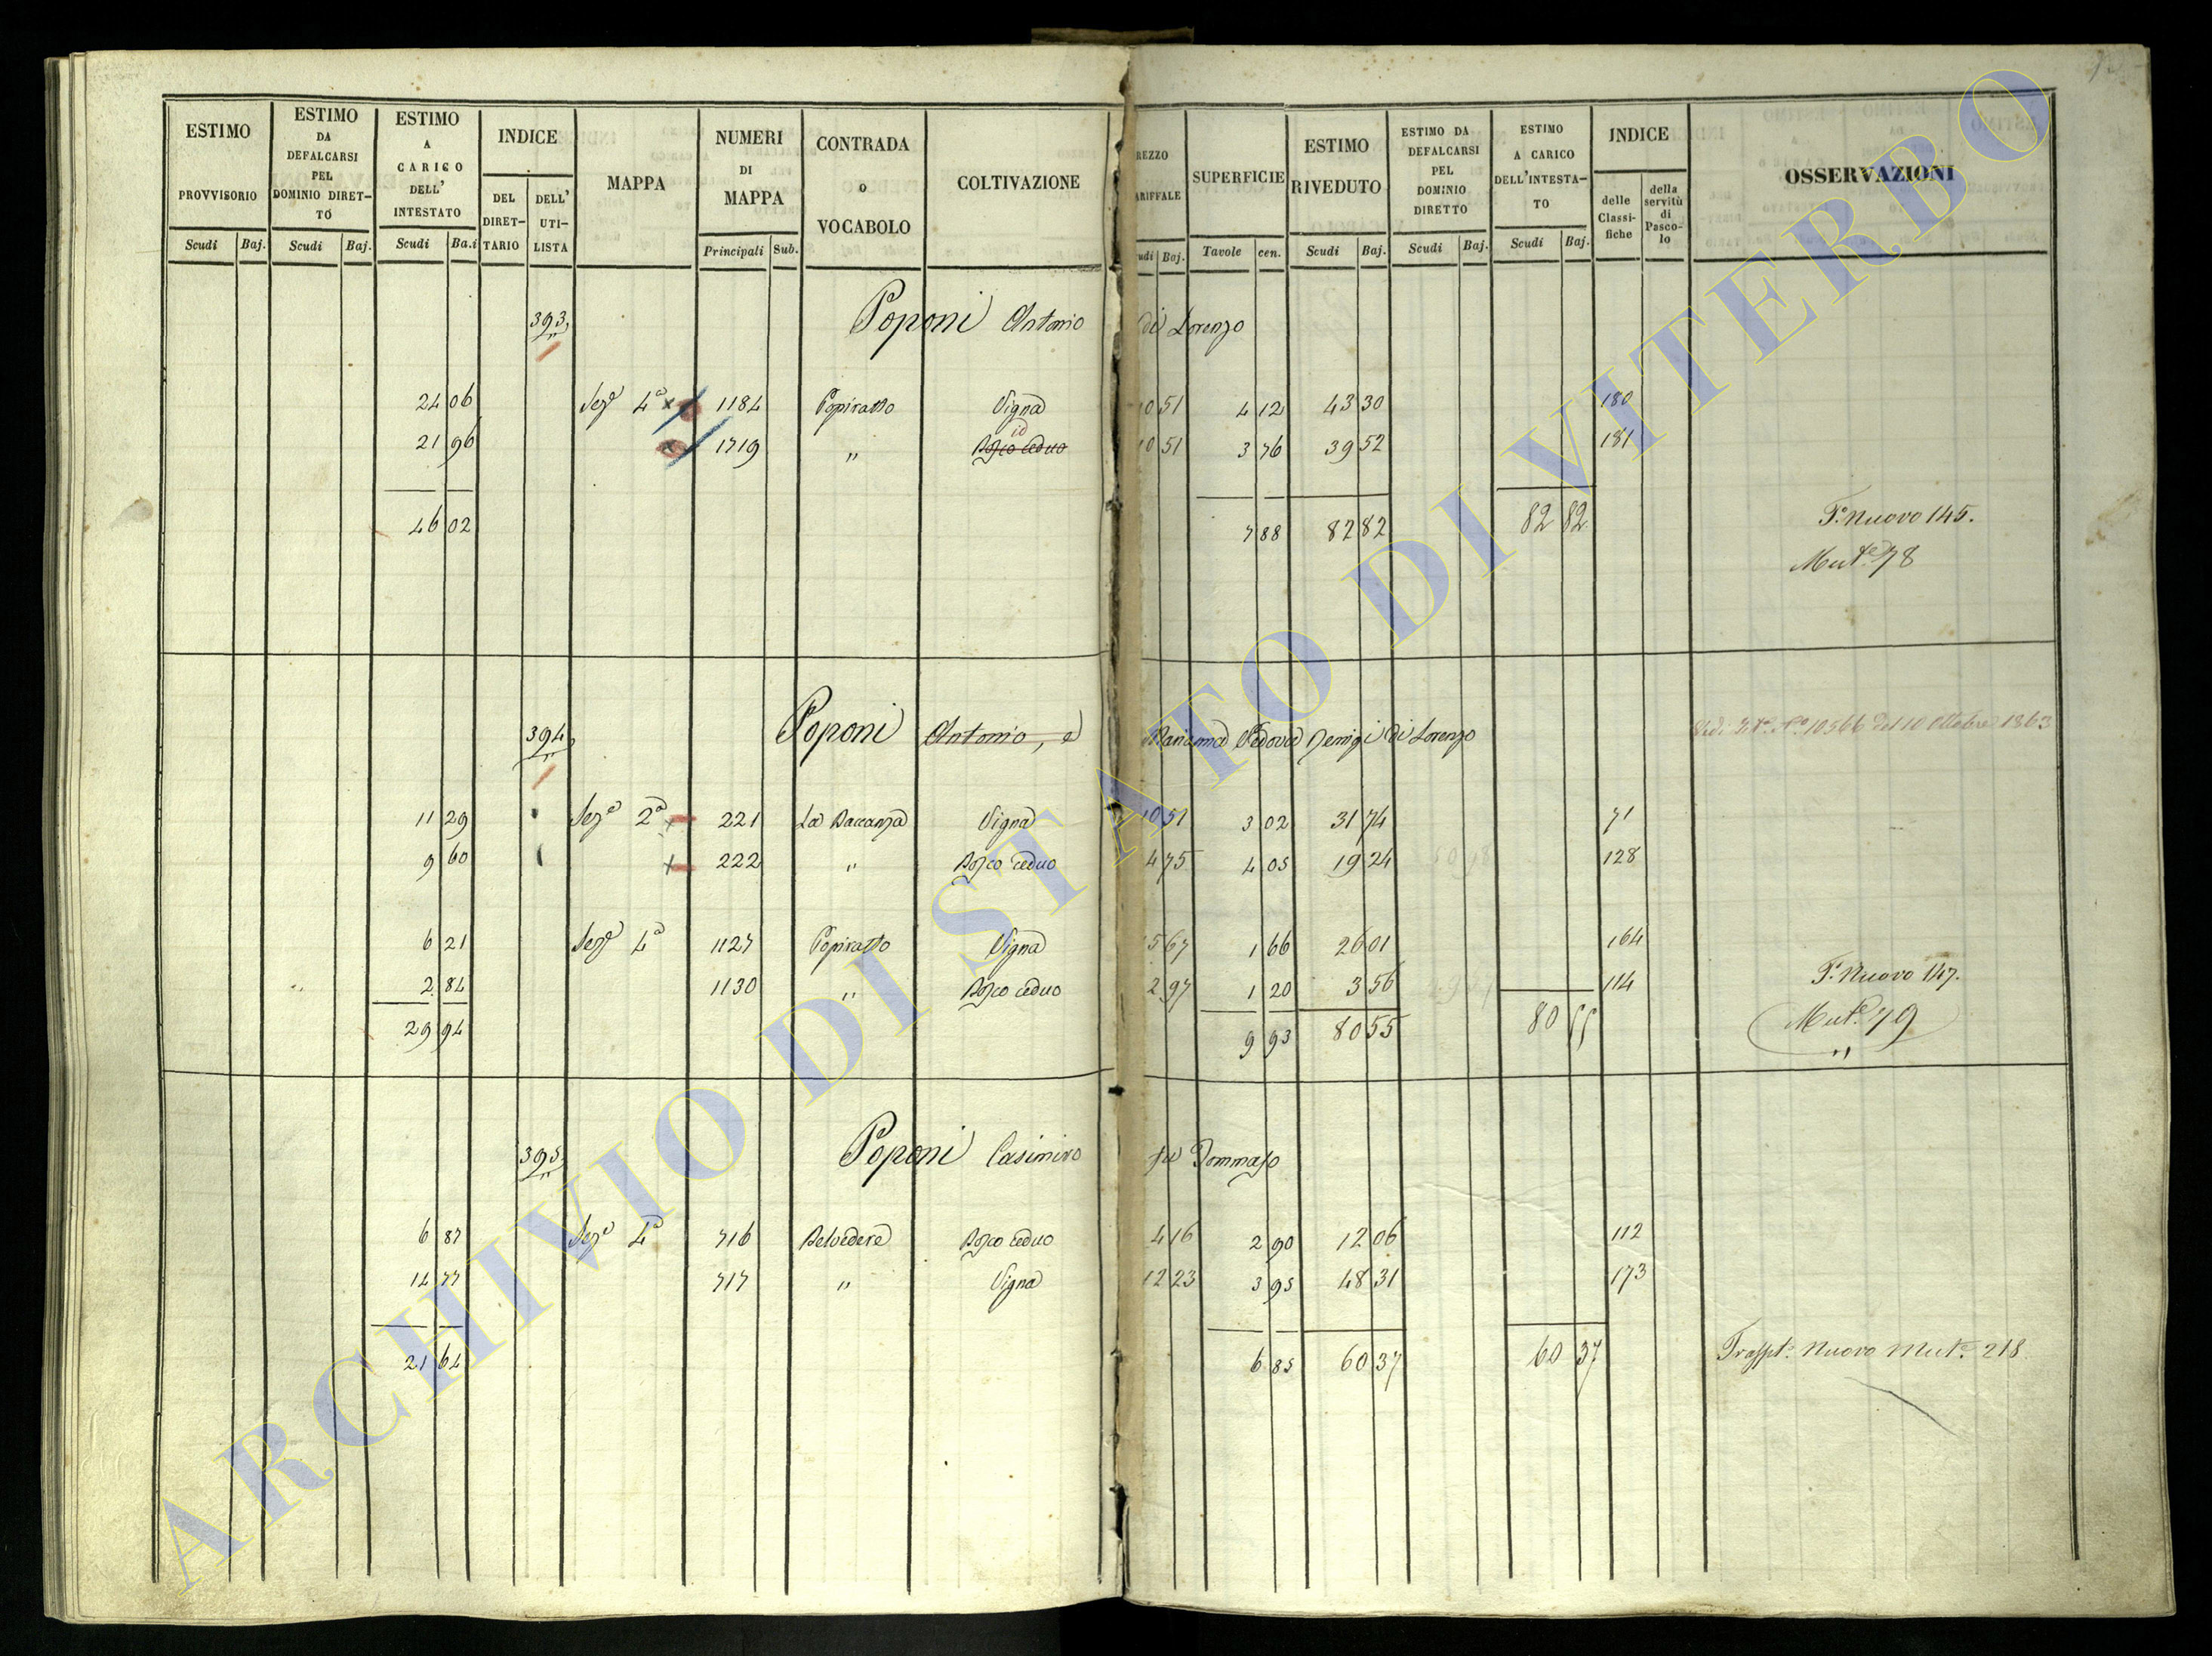 ESTIMO PROVVISORIO Scudi Baj. ESTIMO DA DEFALCARSI PEL DOMINIO DIRETTO Scudi Baj. ESTIMO A CARICO DELL' INTESTATO Scudi Ba.i INDICE DEL DIRETTARIO DELL' UTILISTA MAPPA NUMERI DI MAPPA Principali Sub. CONTRADA O VOCABOLO COLTIVAZIONE REZZO ARIFFALE udi Baj. SUPERFICIE Tavole cen. ESTIMO RIVEDUTO Scudi Baj. ESTIMO DA DEFALCARSI PEL DOMINIO DIRETTO Scudi Baj. ESTIMO A CARICO DELL'INTESTATO Scudi Baj. INDICE delle Classifiche della servitù di Pascolo OSSERVAZIONI
393 Poponi Antonio di Lorenzo
24 06 Seze 4a x 1184 Vigna 10 51 4 12 43 30 180
21 96 x 1719 " id Bosco ceduo 10 51 3 76 39 52 181
46 02 7 88 82 82 82 82 Fo Nuovo 145.
Mute 78
394 Poponi Antonio, e Marianna Vedova di Lorenzo No 10566 del 10 Ottobre 1863
11 29 Seze 2a x 221 La Vigna 10 51 3 02 31 74 71
9 60 x 222 " Bosco ceduo 4 75 4 05 19 24 128
6 21 Seze 4a 1127 Vigna 15 67 1 66 26 01 164
2 84 1130 " Bosco ceduo 2 97 1 20 3 56 114 Fo Nuovo 147.
29 94 9 93 80 55 80 55 Mute 79
"
395 Poponi Casimiro fu Tommaso
6 87 Seze 4a 716 Belvedere Bosco ceduo 4 16 2 90 12 06 112
14 77 717 " Vigna 12 23 3 95 48 31 173
21 64 6 85 60 37 60 37 Trasspto Nuovo Mute 218
ARCHIVIO DI STATO DI VITERBO